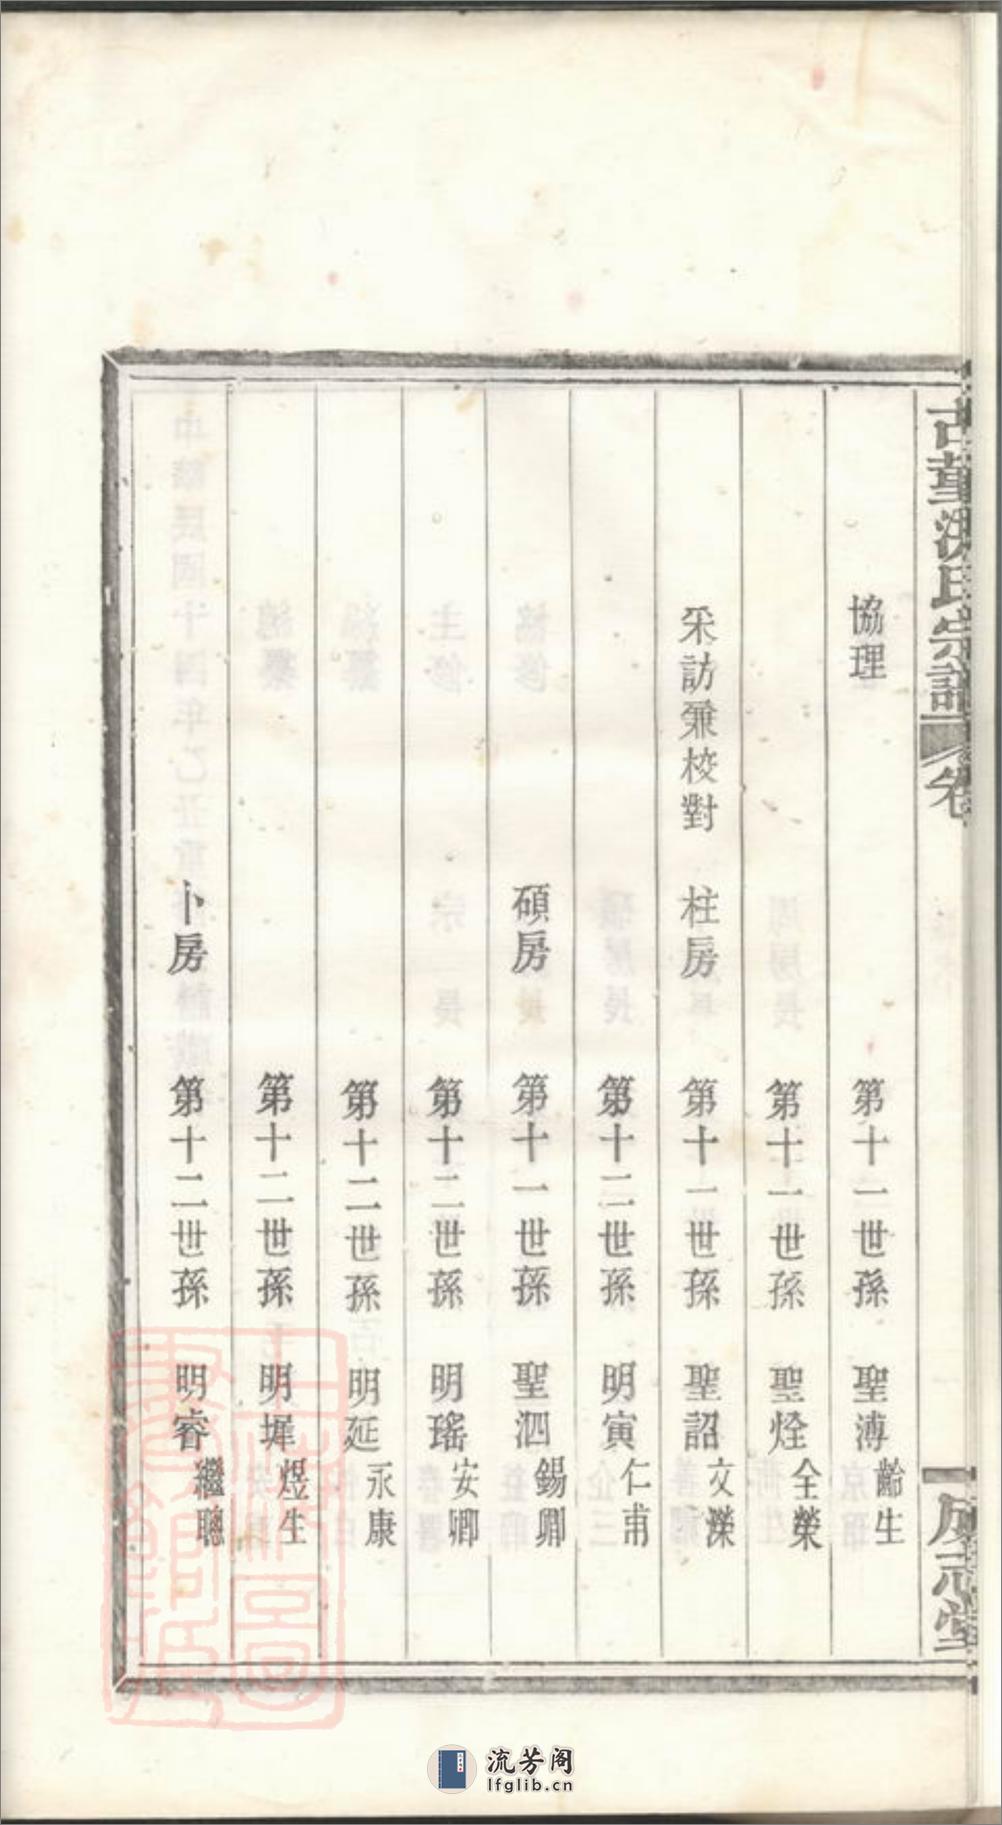 古堇洪氏宗譜
卷
成志堂
協理 第十一世孫 聖溥 齡生
第十一世孫 聖烇 全榮
采訪兼校對 柱房 第十一世孫 聖詔 文濚
第十二世孫 明寅 仁甫
碩房 第十一世孫 聖泗 錫卿
第十二世孫 明瑤 安卿
第十二世孫 明延 永康
第十二世孫 明墀 煜生
卜房 第十二世孫 明睿 繼聰
流芳阁
lfglib.cn